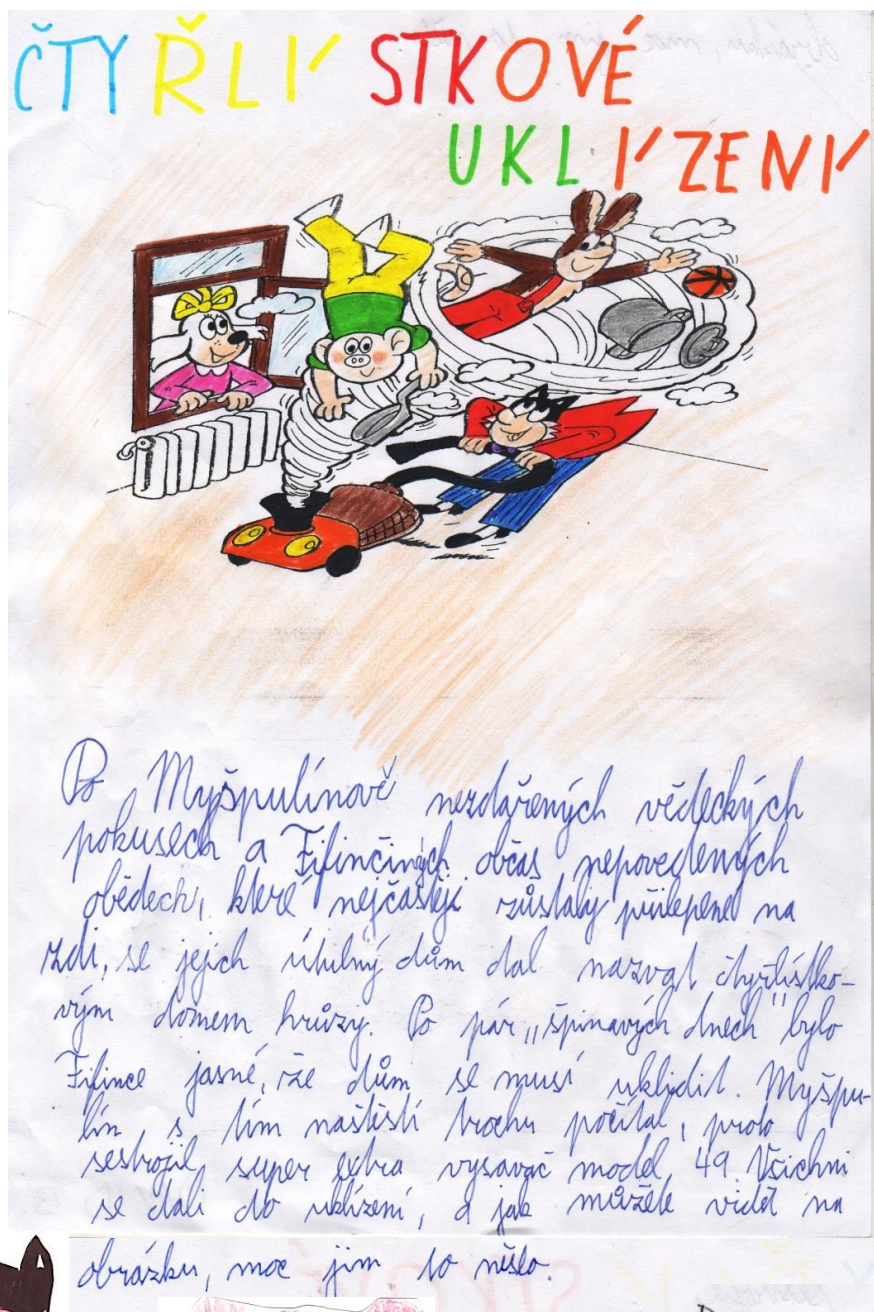 ČTYŘLÍSTKOVÉ
UKLÍZENÍ
Po Myšpulínově nezdařených vědeckých
pokusech a Fifinčiných občas nepovedených
obědech, které nejčastěji zůstaly přilepené na
zdi, se jejich útulný dům dal nazvat čtyřlístko-
vým domem hrůzy. Po pár „špinavých dnech" bylo
Fifince jasné, že dům se musí uklidit. Myšpu-
lín s tím naštěstí trochu počítal, proto
sestrojil super extra vysavač model 49. Všichni
se dali do uklízení, a jak můžete vidět na
obrázku, moc jim to nešlo.